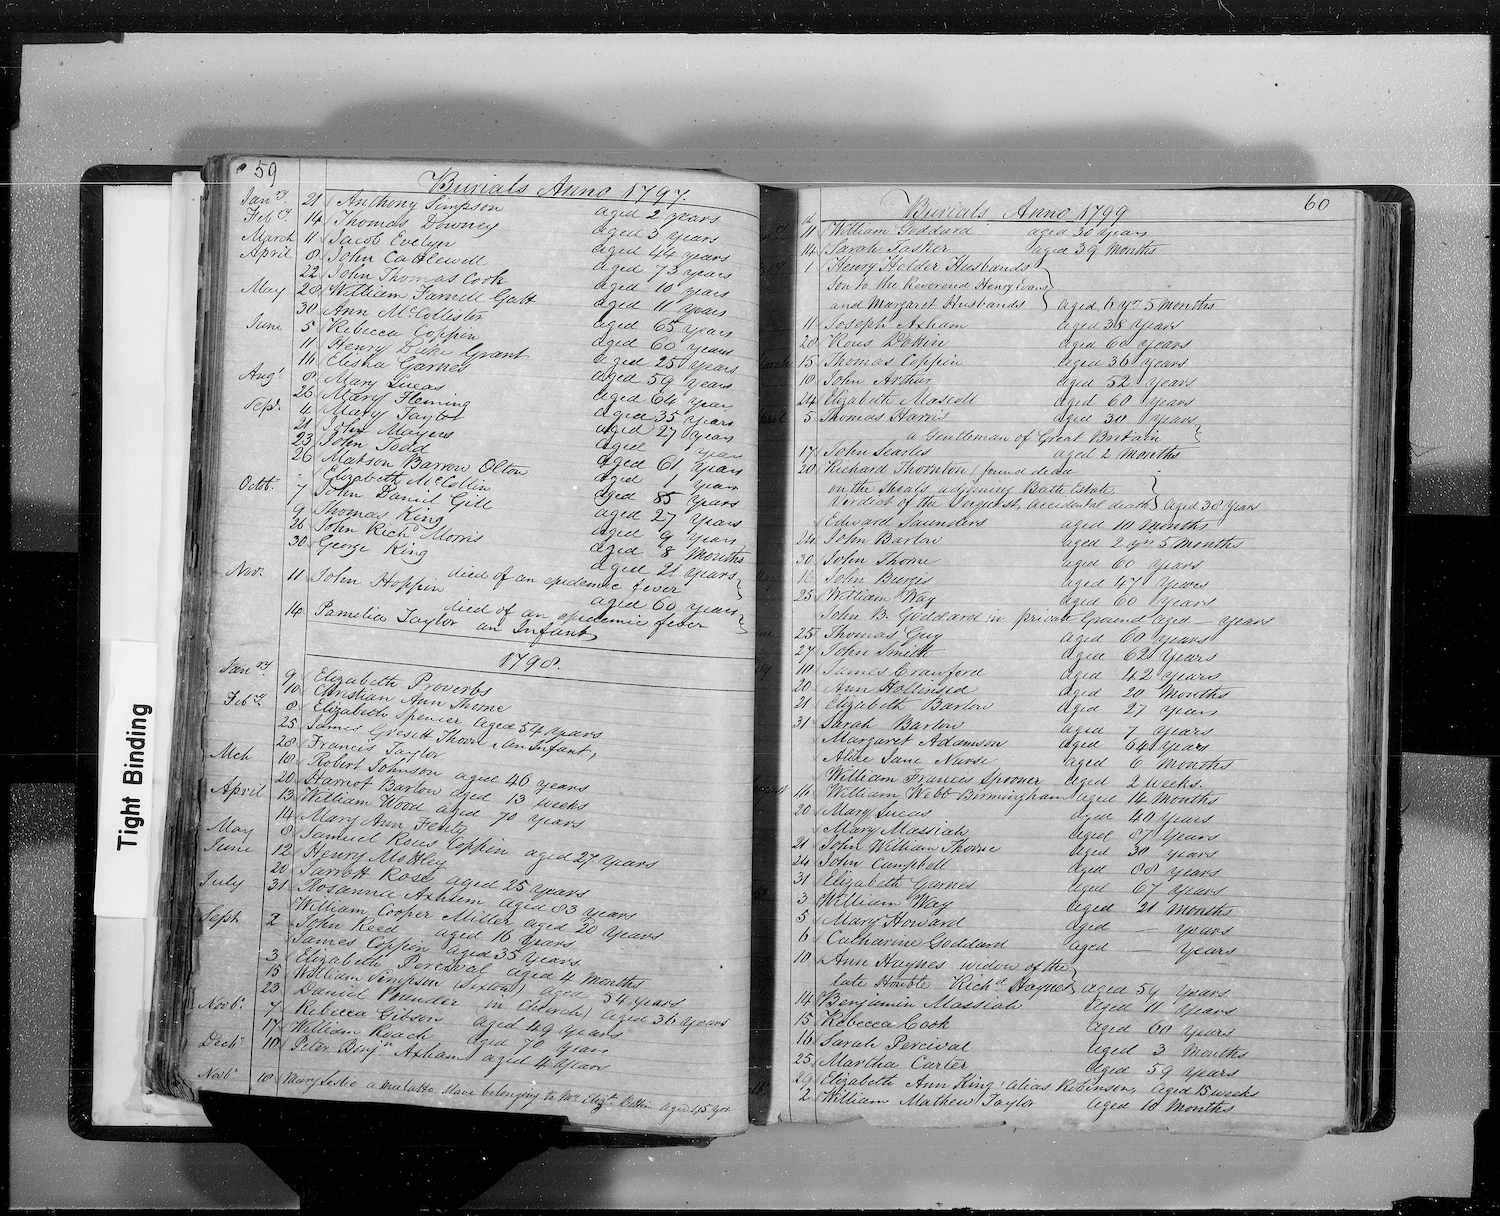 59
Burials Anno 1797.
Jan.ry 21 Anthony Simpson aged 2 years
Feb.ry 14 Thomas Downey aged 3 years
March 11 Jacob Evelyn aged 44 years
April 8 John Cattlewell aged 73 years
22 John Thomas Cook aged 10 years
May 28 William Farnell Gall aged 11 years
30 Ann McCollister aged 65 years
June 5 Rebecca Coppin aged 60 years
11 Henry Duke Grant aged 25 years
16 Elisha Garnes aged 59 years
Augt 8 Mary Lucas aged 64 year
26 Mary Fleming aged 35 years
Sepr. 4 Mary Taylor aged 27 years
21 John Mayers aged 1 year
23 John Todd aged 61 years
26 Matson Barrow Olton aged 1 year
Elizabeth McCollin aged 85 years
Octbr. 7 John Daniel Gill aged 27 years
9 Thomas King aged 9 years
26 John Richd Morris aged 8 Months
30 George King aged 21 years
died of an epidemic fever
Nov.r 11 John Hoppin aged 60 years
died of an epidemic fever
14 Pamelia Taylor an Infant
1798.
Jan.ry 9 Elizabeth Proverbs
10 Christian Ann Thorne
Feb.ry 8 Elizabeth Spencer aged 54 years
25 James Thorn an Infant,
28 Francis Taylor
Mch 18 Robert Johnson aged 46 years
20 Harriot Barlow aged 13 weeks
April 13 William Wood aged 70 years
14 Mary Ann Fenty
May 8 Samuel Rous Coppin aged 27 years
June 12 Henry Mottley
20 Jarrett Rose aged 25 years
July 31 Rosanna Axhem aged 83 years
William Cooper Miller aged 20 years
Sept. 2 John Reed aged 16 years
James Coppin aged 35 years.
3 Elizabeth Percival aged 4 months
15 William Simpson (Sexton) aged 54 years
23 Daniel (in Church) aged 36 years
Novbr. 7 Rebecca Gibson aged 49 years
17 William Roach aged 70 years
Decbr 10 Peter Benjn Axham aged 4 years
Novbr 18 Mary Leslie a malatto slave belonging to Mrs Elizth aged 45 yrs

60
Burials Anno 1799
11 William Goddard aged 30 years
14 Sarah Tasker aged 39 months
1 Henry Holder Husbands
Son to the Reverend Henry Evans
and Margaret Husbands aged 6 yrs 5 months
11 Joseph Axham aged 38 years
20 Rous aged 60 years
15 Thomas Coppin aged 36 years
18 John Arthur aged 52 years
24 Elizabeth Mascoll aged 60 years
5 Thomas Harris aged 30 years
a Gentleman of Great Bretain
17 John Searles aged 2 months
20 Richard Thornton (found dead
on the Shoals adjoining Bath Estate
Verdict of the Inquest, accidental death) aged 38 years
Edward Saunders aged 10 months
24 John Barlow aged 2 yrs 5 months
30 John Thorne aged 60 years
John Burges aged 47 years
25 William Way aged 60 years
John B. Goddard in private Ground aged — years
25 Thomas Guy aged 60 years
27 John Smith aged 62 years
10 James Crawford aged 42 years
20 Ann Hollinsed aged 20 months
21 Elizabeth Barlow aged 27 years
31 Sarah Barlow aged 7 years
Margaret Adamson aged 64 years
Alice Jane Nurse aged 6 months
William Francis Spooner aged 2 weeks.
16 William Webb Birmingham aged 14 months
20 Mary Lucas aged 40 years
Mary Massiah aged 87 years
21 John William Thorne aged 30 years
24 John Campbell aged 88 years
31 Elizabeth Garnes aged 67 years
3 William Way aged 21 months
5 Mary Howard aged — years
6 Catharine Goddard aged — years
10 Ann Haynes widow of the
late Honble Richd Haynes aged 54 years
14 Benjamin Massiah aged 11 years
15 Rebecca Cook aged 60 years
16 Sarah Percival aged 3 months
25 Martha Carter aged 59 years
29 Elizabeth Ann King alias Robinson, aged 15 weeks
2 William Mathew Taylor aged 18 months
Tight Binding